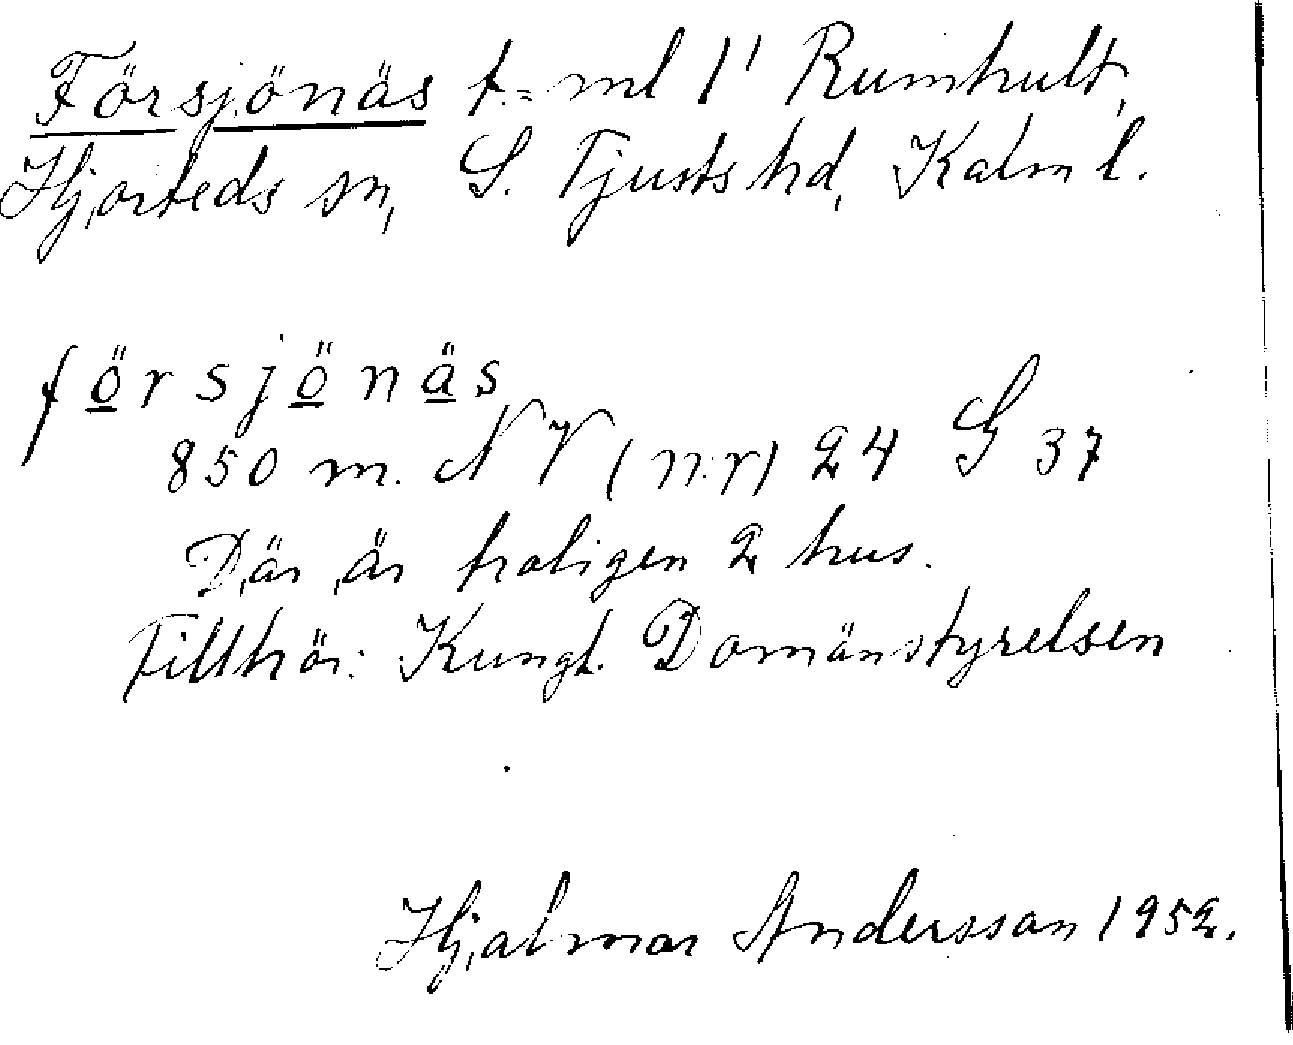 Försjönäs t.=ml 1' Rumhult,
Hjorteds sn, S. Tjusts hd, Kalm l.
försjönäs
850 m. NV (n.r) 24 G 37
Där är troligen 2 hus.
Tillhör: Kungl. Domänstyrelsen
Hjalmar Andersson 1952.